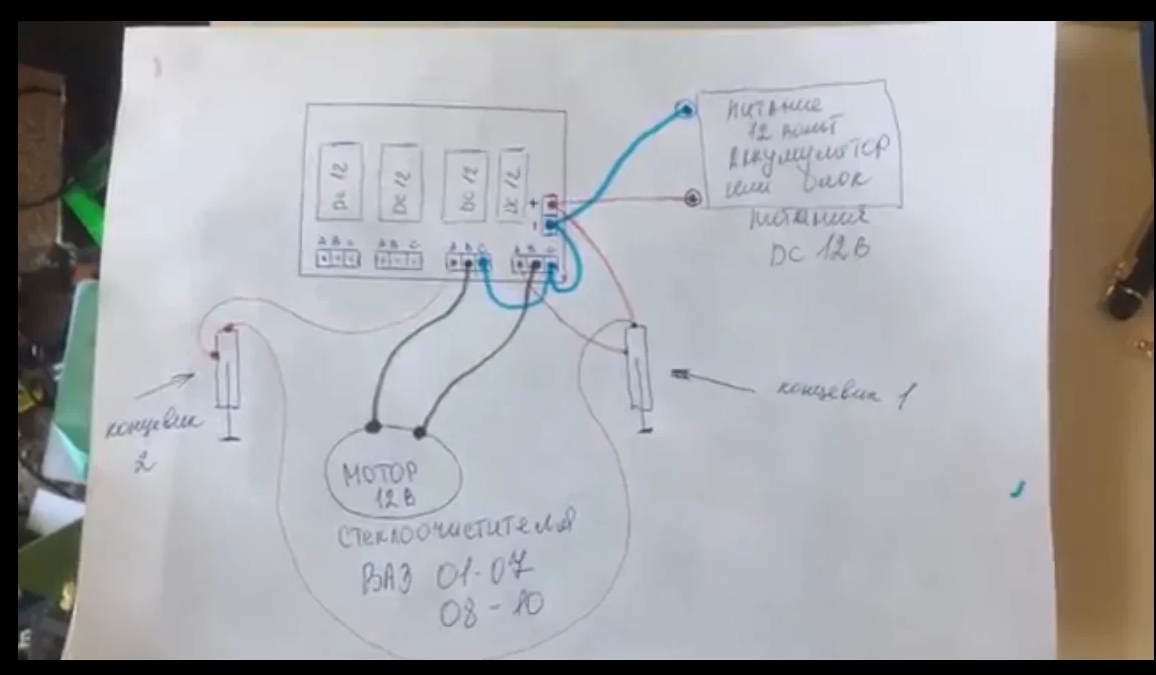 питание
12 вольт
Аккумулятор
или блок
питания
DC 12В
DC 12
DC 12
DC 12
DC 12
+
-
А В С
А В С
А В С
А В С
концевик 1
концевик
2
МОТОР
12В
стеклоочистителя
ВАЗ 01-07
08-10